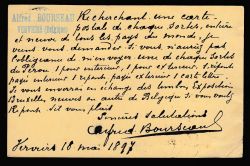 Alfred BOURSEAU
VERVIERS (Belgique)
Recherchant une carte
postal de chaque Sortes, entière
et neuve de tous les pays du monde, je
viens vous demander si vous n'auriez pas
l'obligeance de m'en voyer une de chaque Sortes
1 pour intérieur, 1 pour extérieur, 1
payée intérieur 1 payée extérieur 1 carte lettre.
Je vous enverrai en change des timbres Exposition
Bruxelles neuves ou autre de Belgique si vous voulez
Réponse s'il vous plait
Sincères Salutations
Alfred Bourseau
Verviers 18 mai 1897